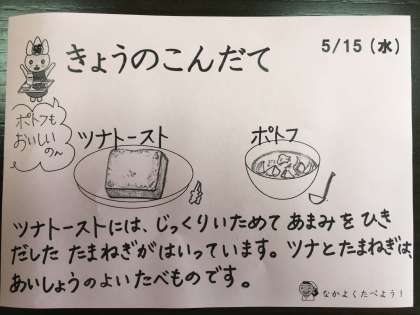 きょうのこんだて
5/15（水）
ポトフも
おいしい
のん
ツナトースト
ポトフ
ツナトーストには、じっくりいためて あまみを ひき
だした たまねぎがはいっています。ツナとたまねぎは、
あいしょうのよいたべものです。
なかよくたべよう！